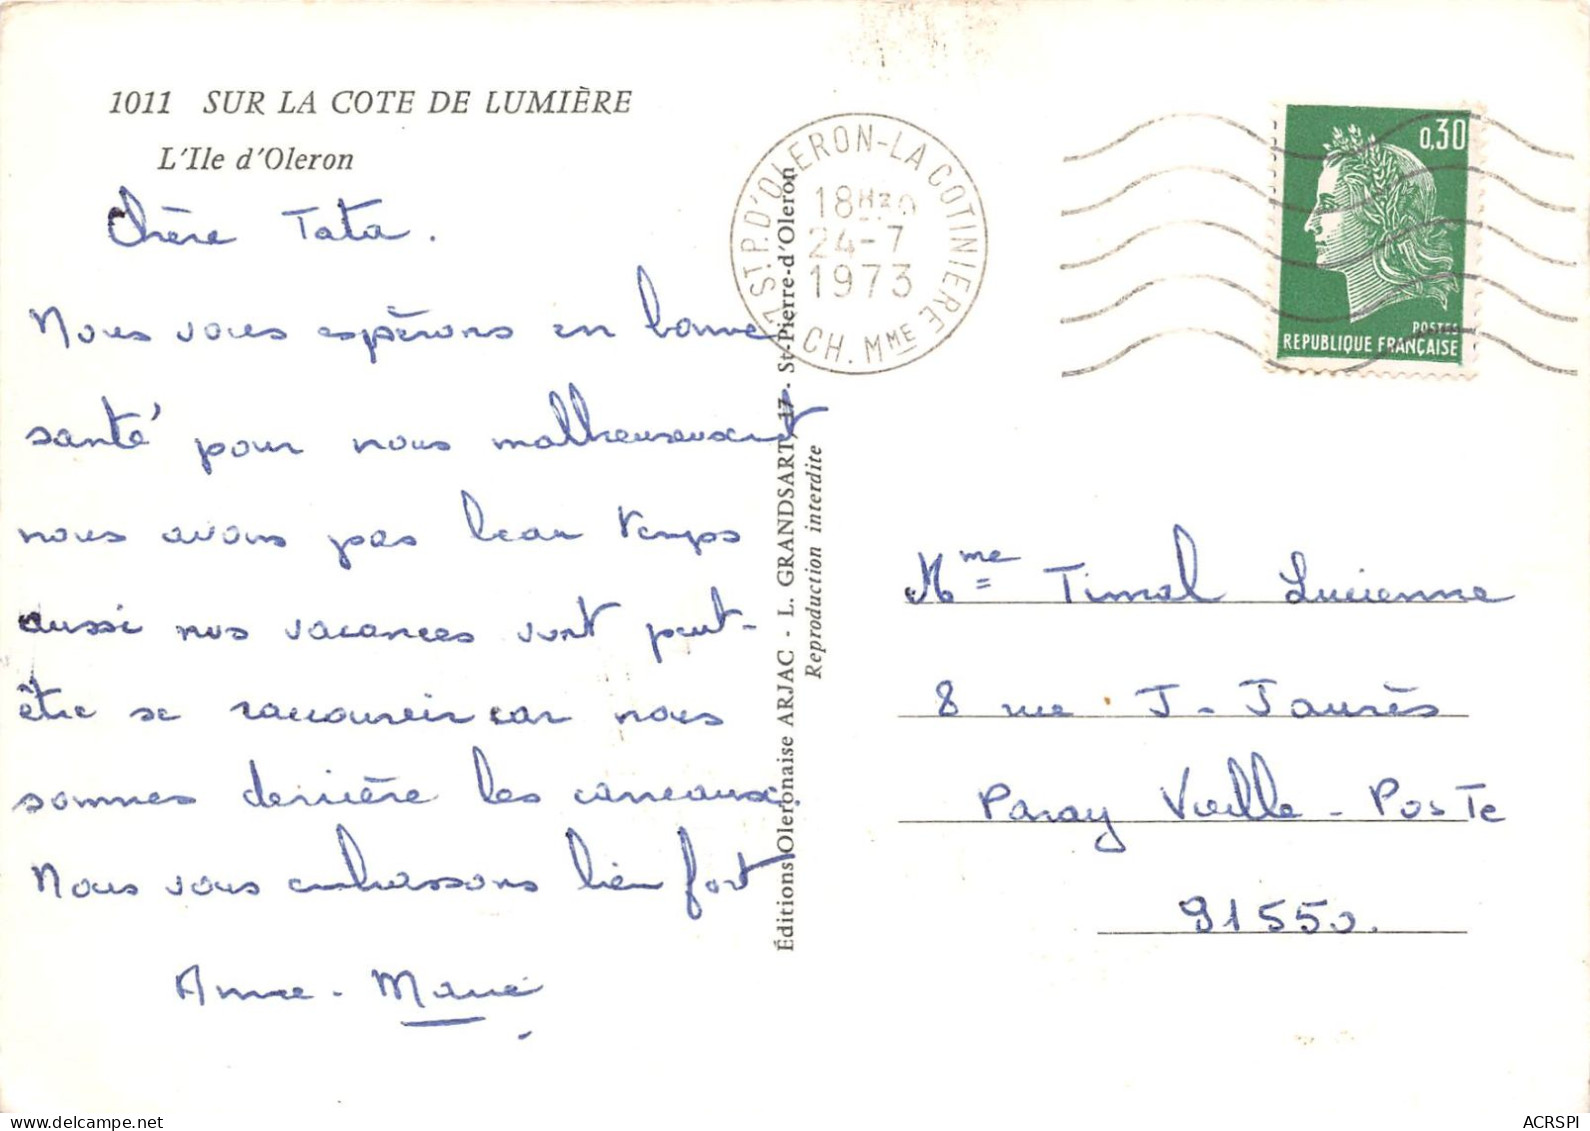 1011 SUR LA COTE DE LUMIÈRE
L'Ile d'Oleron
Chère Tata.
Nous vous espérons en bonne
santé pour nous malheureusement
nous avons pas beau temps
aussi nos vacances vont peut-
être se raccourcir car nous
sommes derrière les carreaux.
Nous vous embrassons bien fort
Anne-Marie
Éditions Oleronaise ARJAC - L. GRANDSART, 17 - St-Pierre-d'Oleron
Reproduction interdite
17 ST P. D'OLERON-LA COTINIERE
18H30
24-7
1973
CH. MME
0,30
POSTES
REPUBLIQUE FRANÇAISE
Mme Timal Lucienne
8 rue J-Jaurès
Paray Vieille-Poste
91550.
ACRSPI